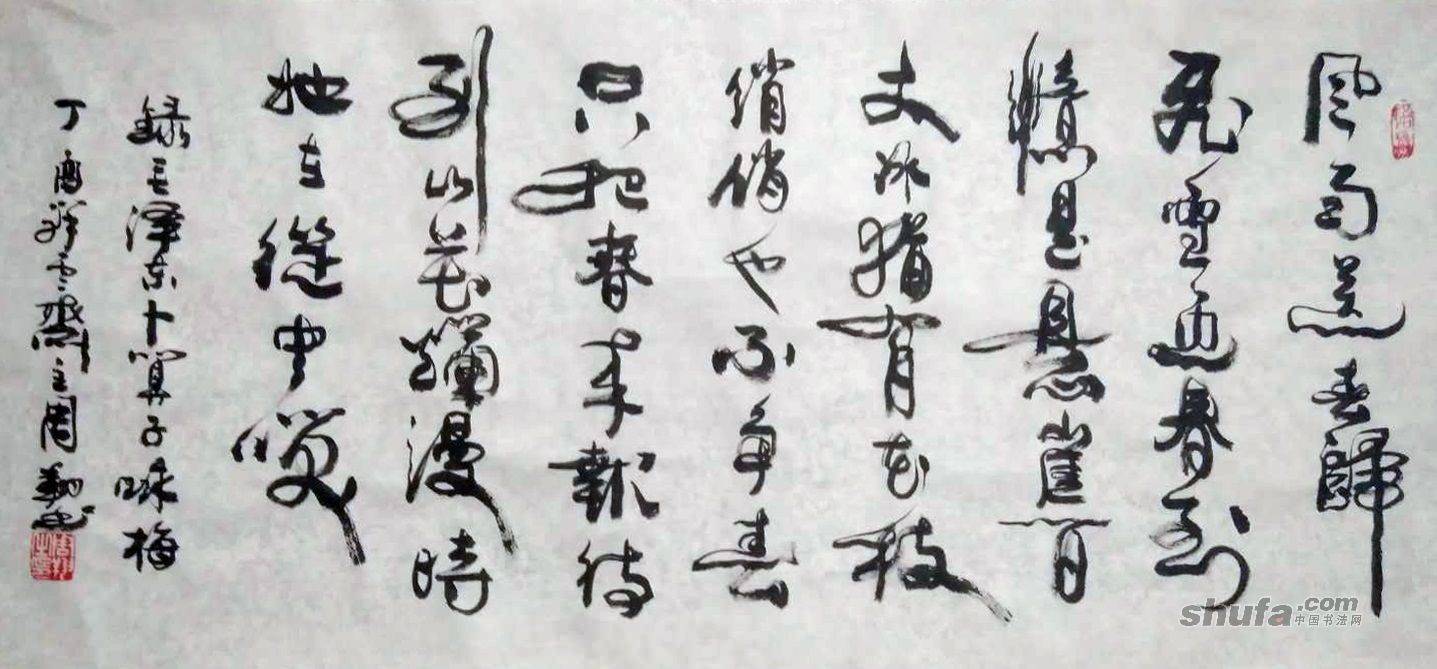 風雨送春歸
飛雪迎春到
是懸崖百
丈冰猶有花枝
俏俏也不争春
只把春来報待
到山花爛漫時
她在叢中咲
錄毛澤東卜算子咏梅
丁酉雲齋主周书
shufa.com
中国书法网